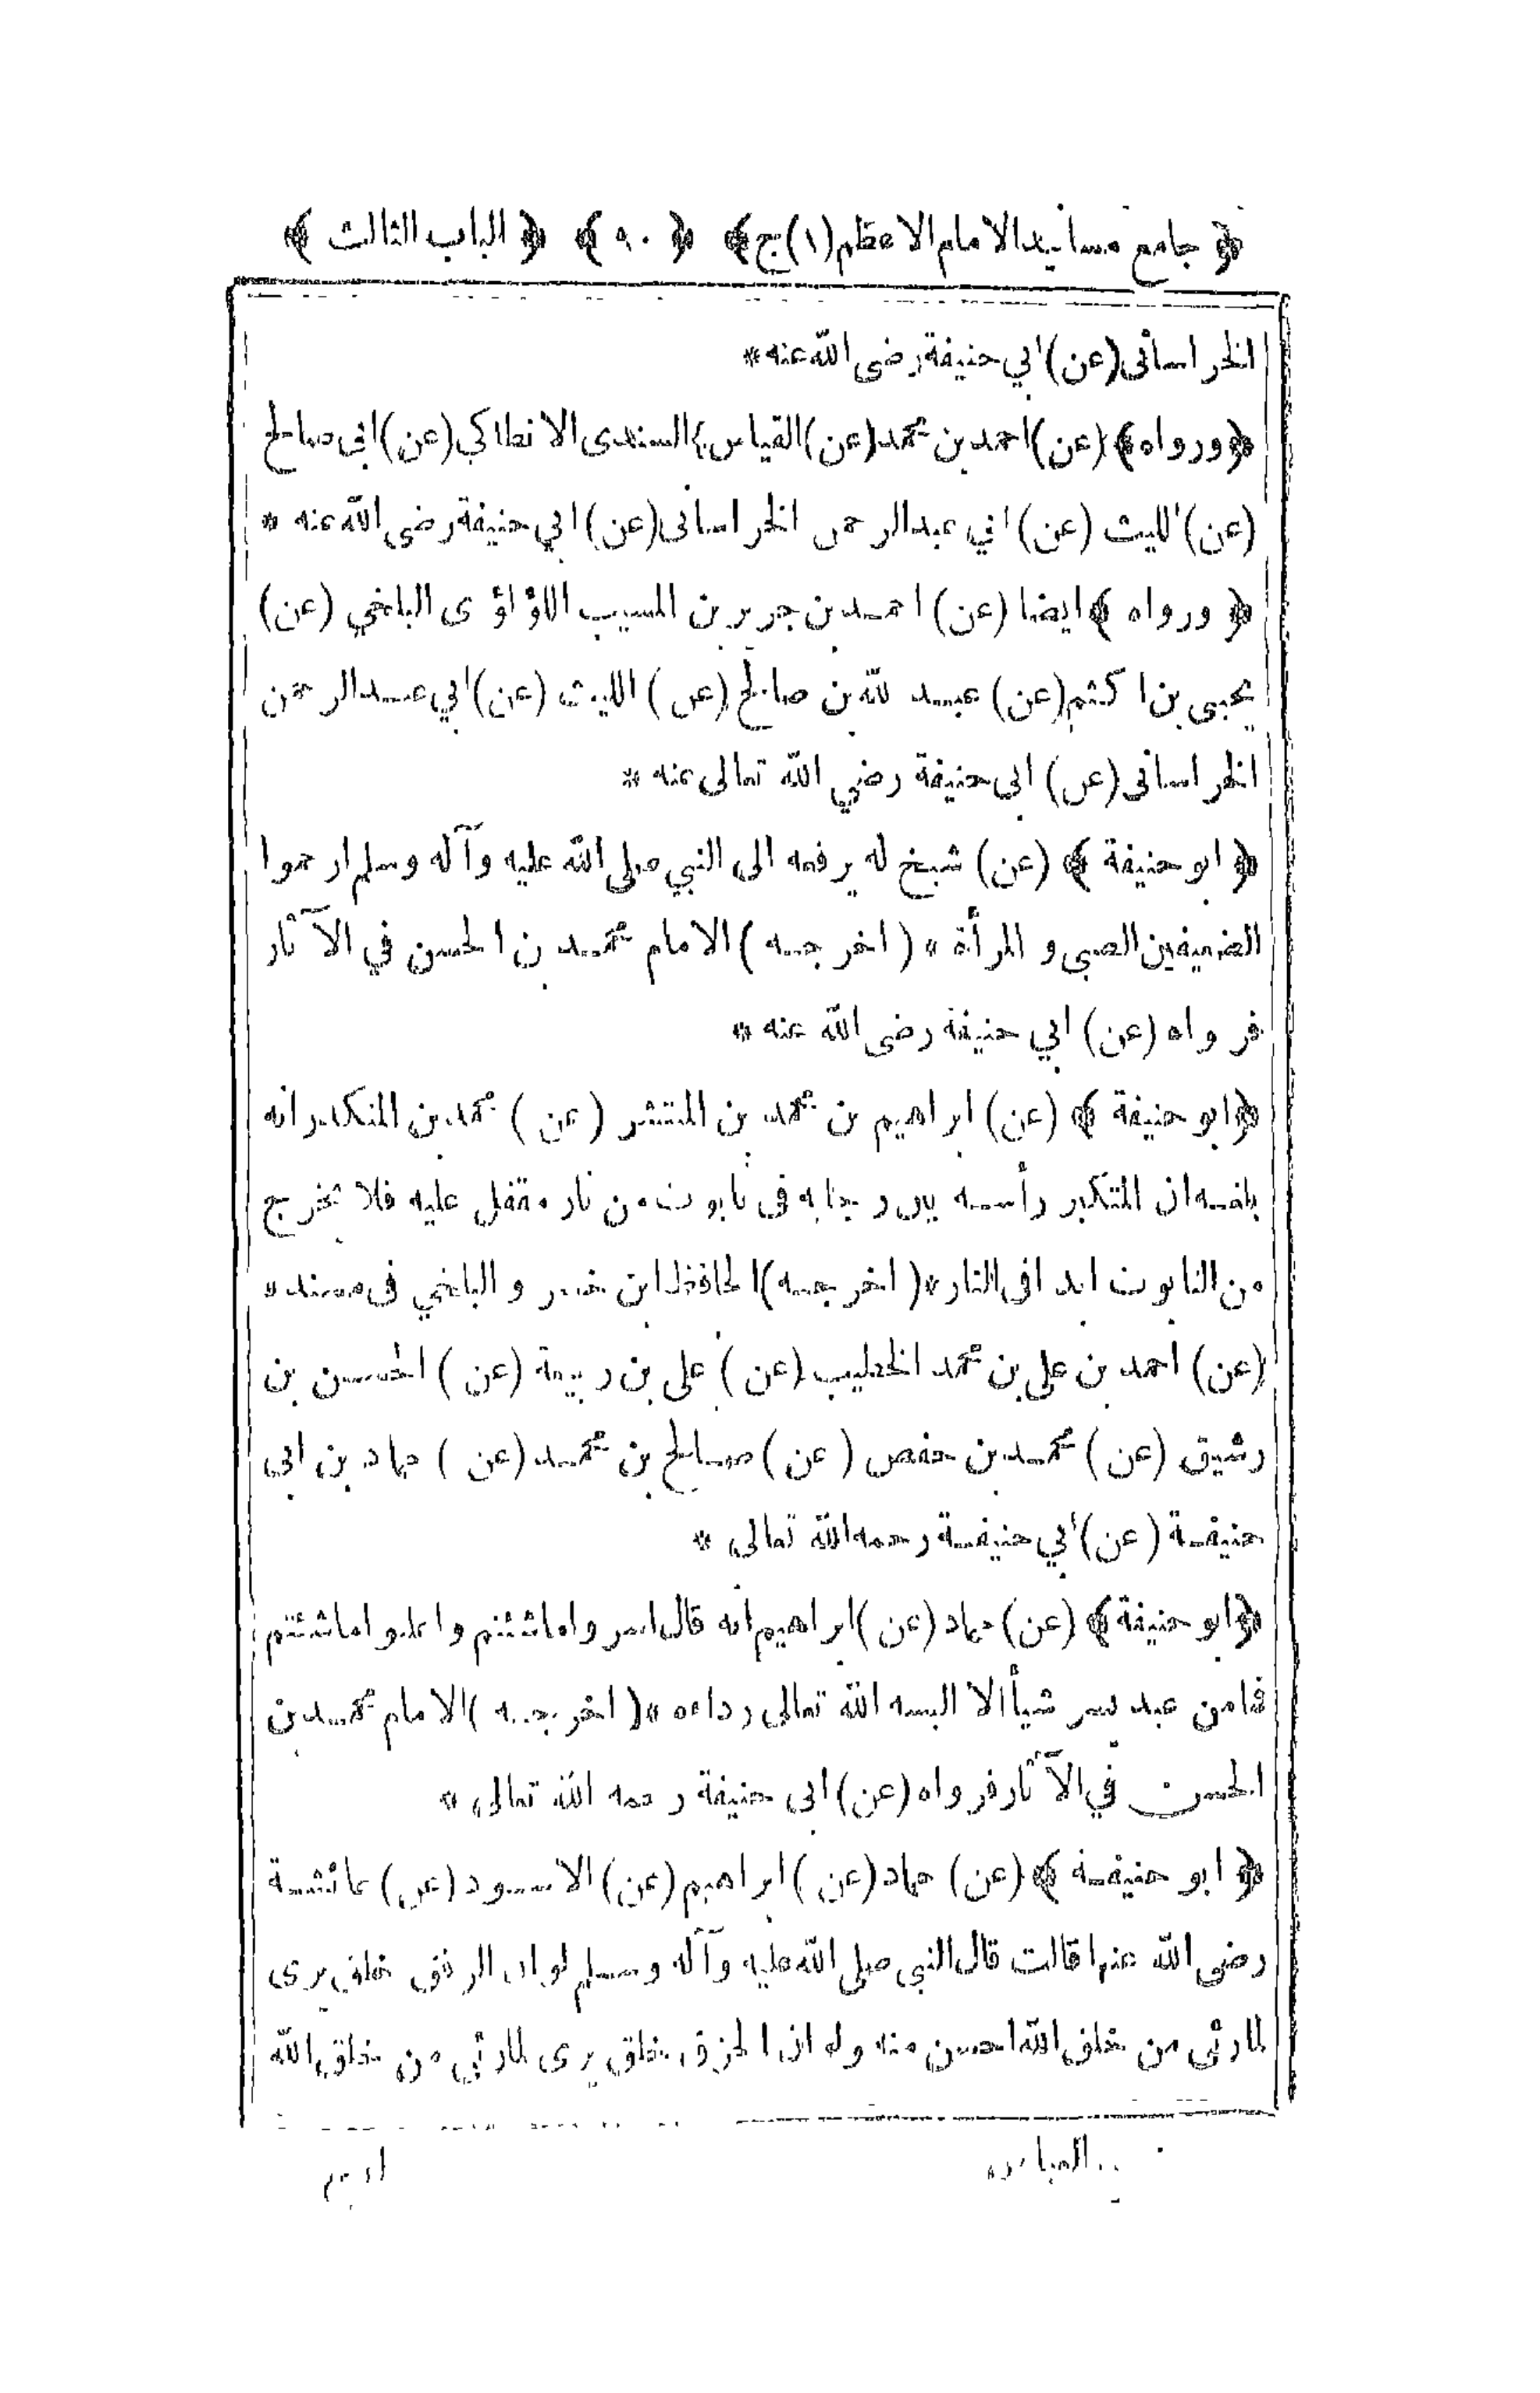 ﴿ جامع مسانيد الامام الاعظم (١) ج ﴾ ﴿ ٩٠ ﴾ ﴿ الباب الثالث ﴾
الخراسانى (عن) ابي حنيفة رضى الله عنه *
﴿ ورواه ﴾ (عن) احمد بن محمد (عن) القياس السندى الانطاكي (عن) ابى صالح
(عن) الليث (عن) ابي عبد الرحمن الخراسانى (عن) ابي حنيفة رضى الله عنه *
﴿ ورواه ﴾ ايضا (عن) احمد بن جرير بن المسيب اللؤلؤى البلخي (عن)
يحيى بن اكثم (عن) عبد الله بن صالح (عن) الليث (عن) ابي عبد الرحمن
الخراسانى (عن) ابى حنيفة رضي الله تعالى عنه *
﴿ ابو حنيفة ﴾ (عن) شيخ له يرفعه الى النبي صلى الله عليه وآله وسلم ارحموا
الضعيفين الصبى و المرأة * (اخرجه) الامام محمد بن الحسن في الآثار
فرواه (عن) ابي حنيفة رضى الله عنه *
﴿ ابو حنيفة ﴾ (عن) ابراهيم بن محمد بن المنتشر (عن) محمد بن المنكدر انه
بلغه ان المتكبر رأسه بين رجليه فى تابوت من نار مقفل عليه فلا يخرج
من التابوت ابدا فى النار * (اخرجه) الحافظ ابن خسرو البلخي فى مسنده
(عن) احمد بن علي بن محمد الخطيب (عن) على بن ربيعة (عن) الحسن بن
رشيق (عن) محمد بن حفص (عن) صالح بن محمد (عن) حماد بن ابى
حنيفة (عن) ابي حنيفة رحمه الله تعالى *
﴿ ابو حنيفة ﴾ (عن) حماد (عن) ابراهيم انه قال اسروا ما شئتم واعلنوا ما شئتم
فما من عبد يسر شيأ الا البسه الله تعالى رداءه * (اخرجه) الامام محمد بن
الحسن في الآثار فرواه (عن) ابى حنيفة رحمه الله تعالى *
﴿ ابو حنيفة ﴾ (عن) حماد (عن) ابراهيم (عن) الاسود (عن) عائشة
رضى الله عنها قالت قال النبي صلى الله عليه وآله وسلم لو ان الرفق خلق يرى
لما رئى من خلق الله احسن منه ولو ان الخرق خلق يرى لما رئى من خلق الله